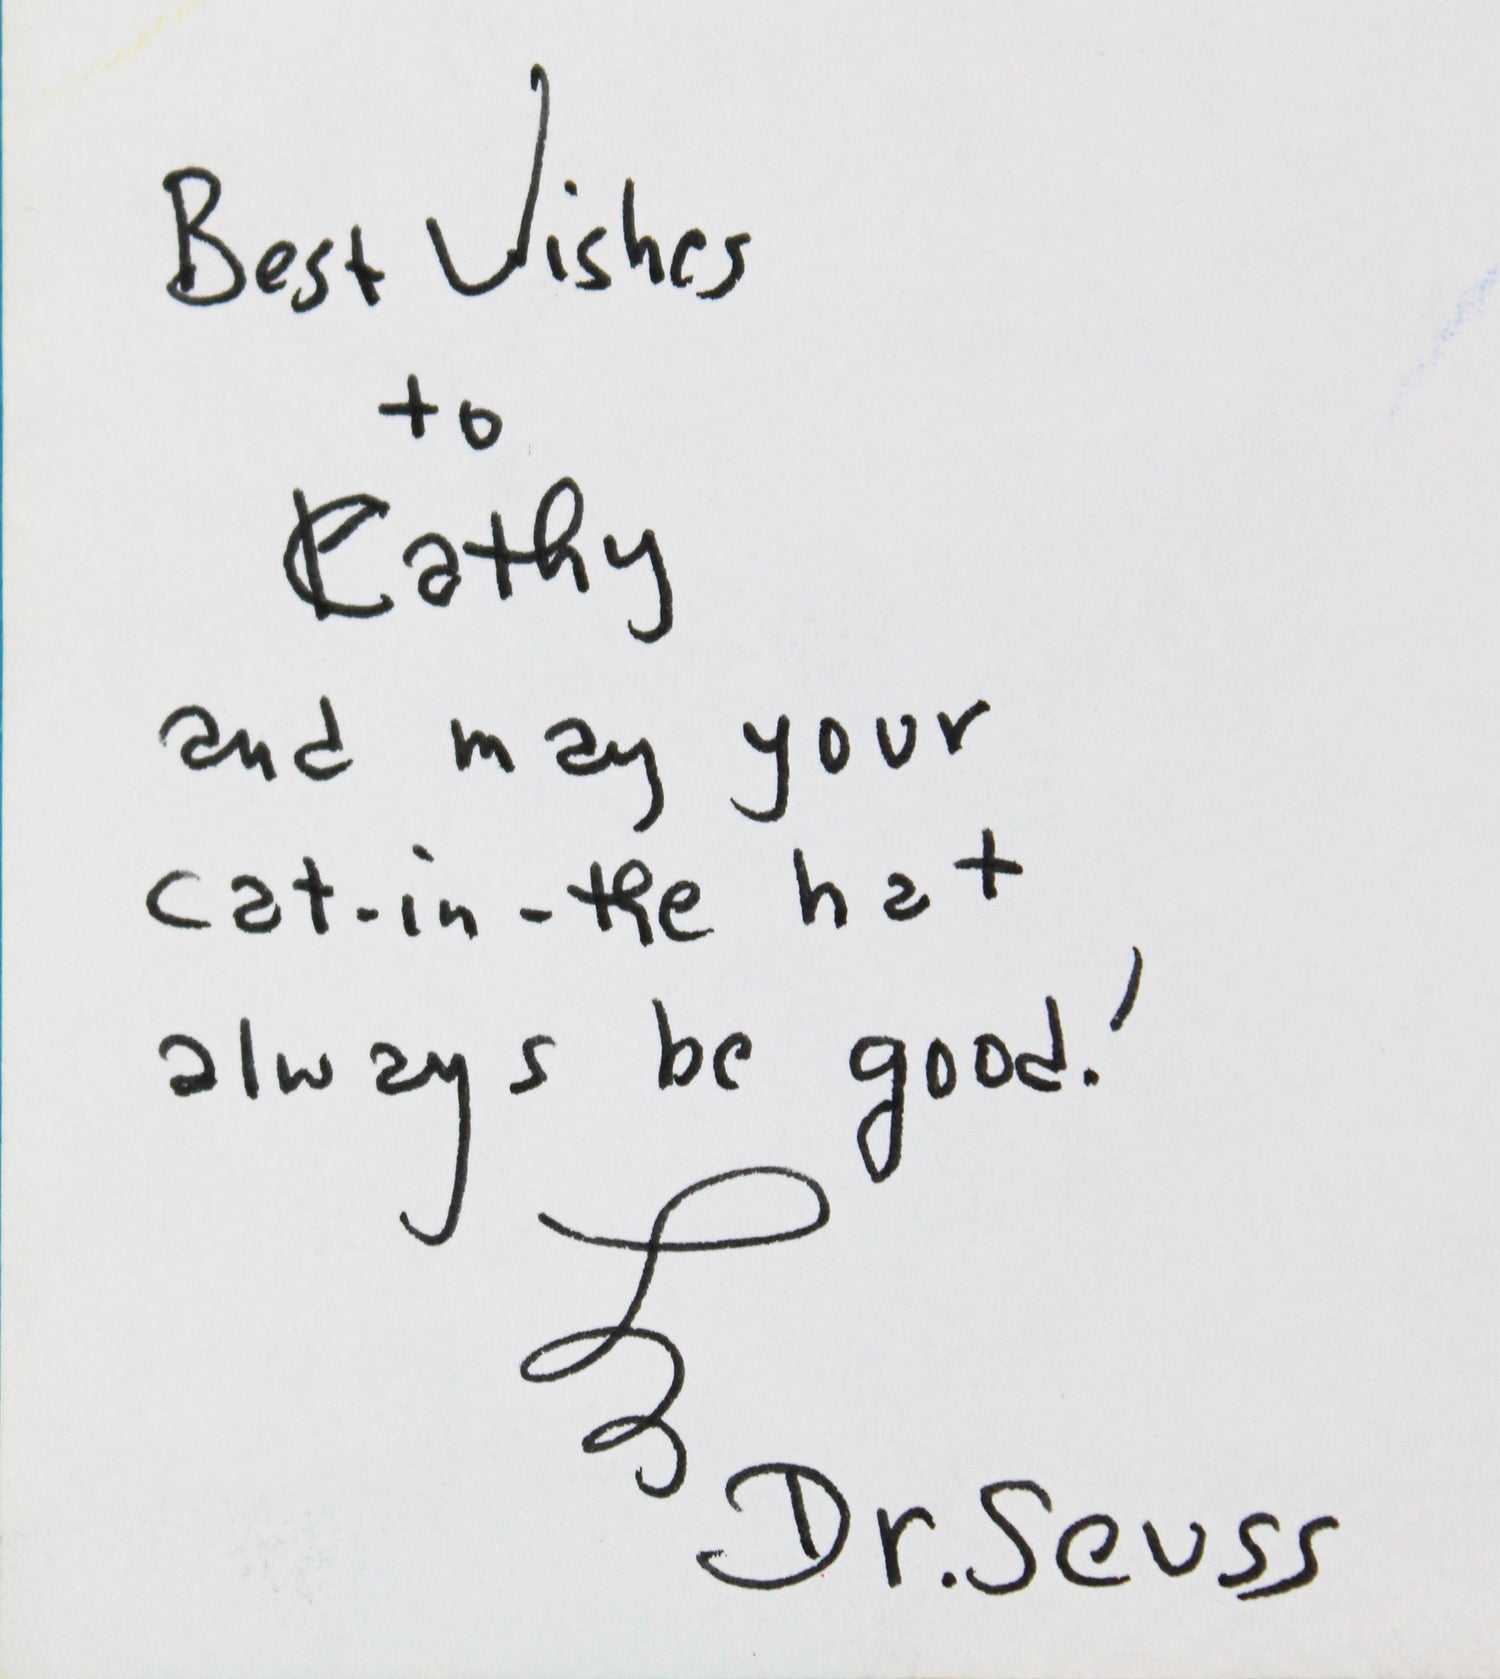 Best Wishes
to
Kathy
and may your
cat-in-the hat
always be good!
Dr. Seuss